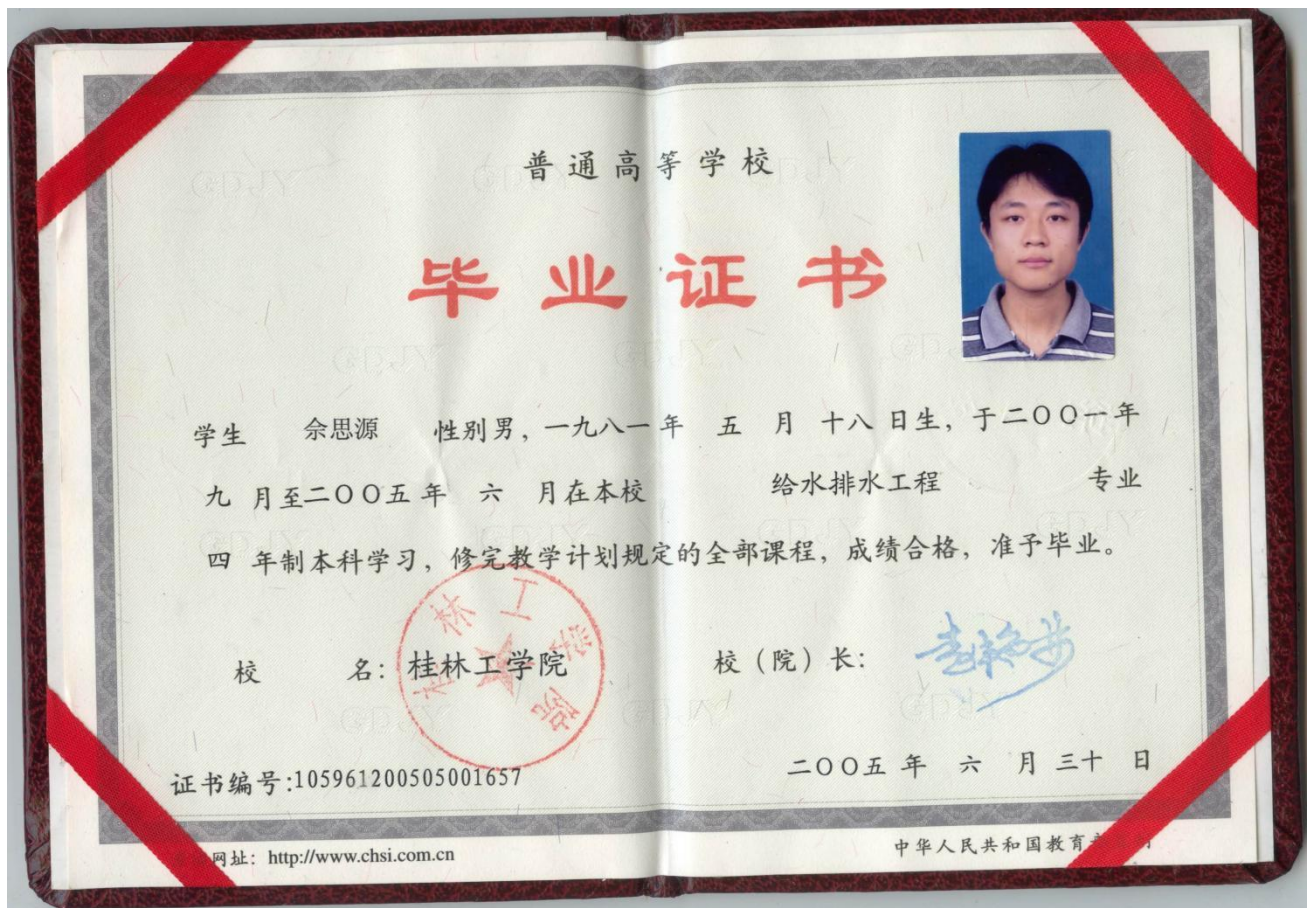 普通高等学校
毕业证书
学生 佘思源 性别男，一九八一年 五 月 十八 日生，于二〇〇一年
九 月至二〇〇五年 六 月在本校 给水排水工程 专业
四 年制本科学习，修完教学计划规定的全部课程，成绩合格，准予毕业。
桂林工学院
校 名：桂林工学院 校（院）长：
证书编号:105961200505001657 二〇〇五年 六 月 三十 日
网址：http://www.chsi.com.cn 中华人民共和国教育